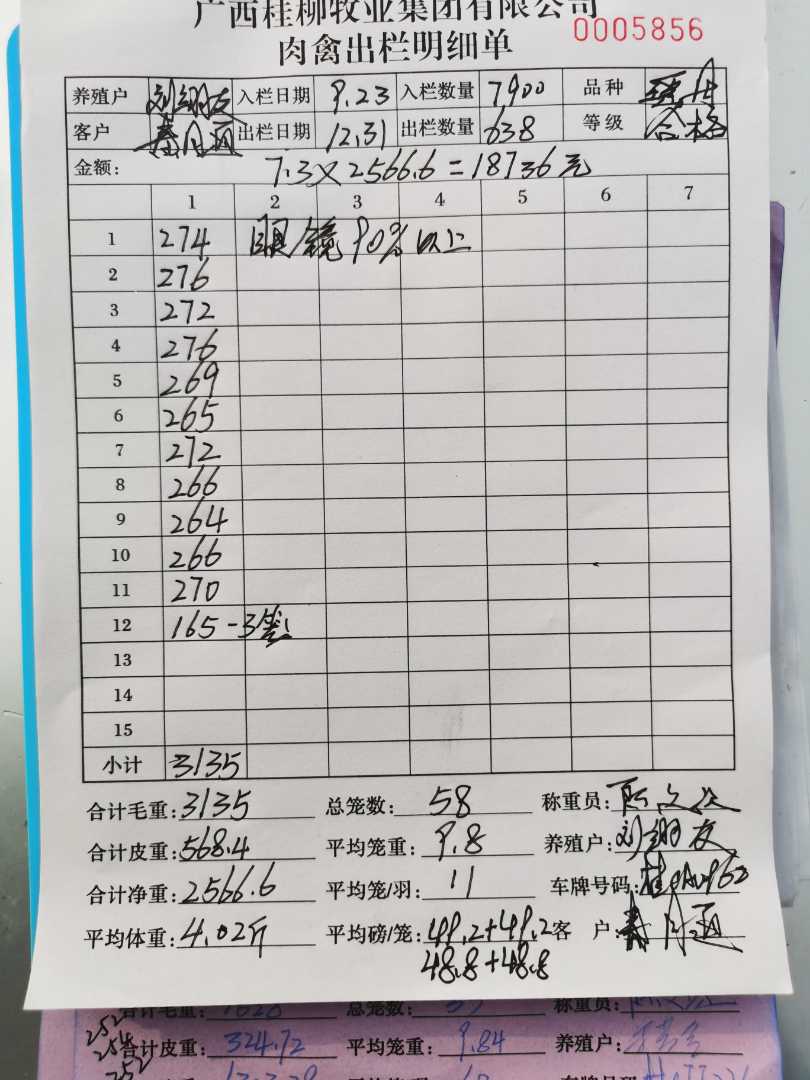 广西桂柳牧业集团有限公司
肉禽出栏明细单 0005856
养殖户 刘翱友 入栏日期 9.23 入栏数量 7900 品种
客户 秦月 出栏日期 12.31 出栏数量 638 等级 合格
金额: 7.3×2566.6=18736元
1 2 3 4 5 6 7
1 274 眼镜90%以上
2 276
3 272
4 276
5 269
6 265
7 272
8 266
9 264
10 266
11 270
12 165-3笼
13
14
15
小计 3135
合计毛重:3135 总笼数: 58 称重员:
合计皮重:568.4 平均笼重: 9.8 养殖户:刘翱友
合计净重:2566.6 平均笼/羽: 11 车牌号码:桂
平均体重:4.02斤 平均磅/笼:49.2+49.2 客 户:秦月
48.8+48.8
合计毛重: 总笼数: 称重员:
252
254 合计皮重: 324.72 平均笼重: 9.84 养殖户:
252